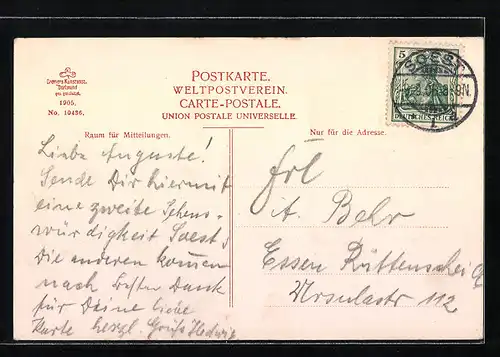 Cramers Kunstanst.
Dortmund
1905.
No. 10436.
POSTKARTE.
WELTPOSTVEREIN.
CARTE-POSTALE.
UNION POSTALE UNIVERSELLE.
Raum für Mitteilungen.
Nur für die Adresse.
5
DEUTSCHES REICH
SOEST
Liebe Auguste!
Sende Dir hiermit
eine zweite Sehens-
würdigkeit Soest,
die anderen kommen
nach. Besten Dank
für Deine liebe
Karte herzl. Gruß Hedwig
Frl
A. Behr
Essen Rüttenscheid
Ursulastr 112